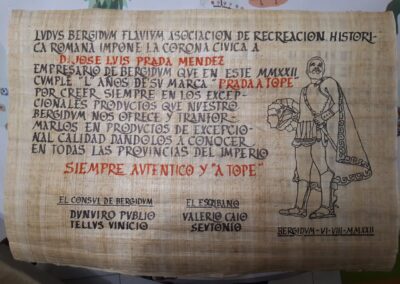 LVDVS BERGIDVM FLAVIVM ASOCIACION DE RECREACION HISTORI-
CA ROMANA IMPONE LA CORONA CIVICA A
D. JOSE LUIS PRADA MENDEZ
EMPRESARIO DE BERGIDVM QVE EN ESTE MMXXII
CVMPLE "L" AÑOS DE SV MARCA "PRADA A TOPE"
POR CREER SIEMPRE EN LOS EXCEP-
CIONALES PRODVCTOS QVE NVESTRO
BERGIDVM NOS OFRECE Y TRANFOR-
MARLOS EN PRODVCTOS DE EXCEPCIO-
NAL CALIDAD DANDOLOS A CONOCER
EN TODAS LAS PROVINCIAS DEL IMPERIO
SIEMPRE AVTENTICO Y "A TOPE"
EL CONSVL DE BERGIDVM
DVNVIRO PVBLIO
TELLVS VINICIO
EL ESCRIBANO
VALERIO CAIO
SEVTONIO
BERGIDVM-VI-VIII-MMXXII